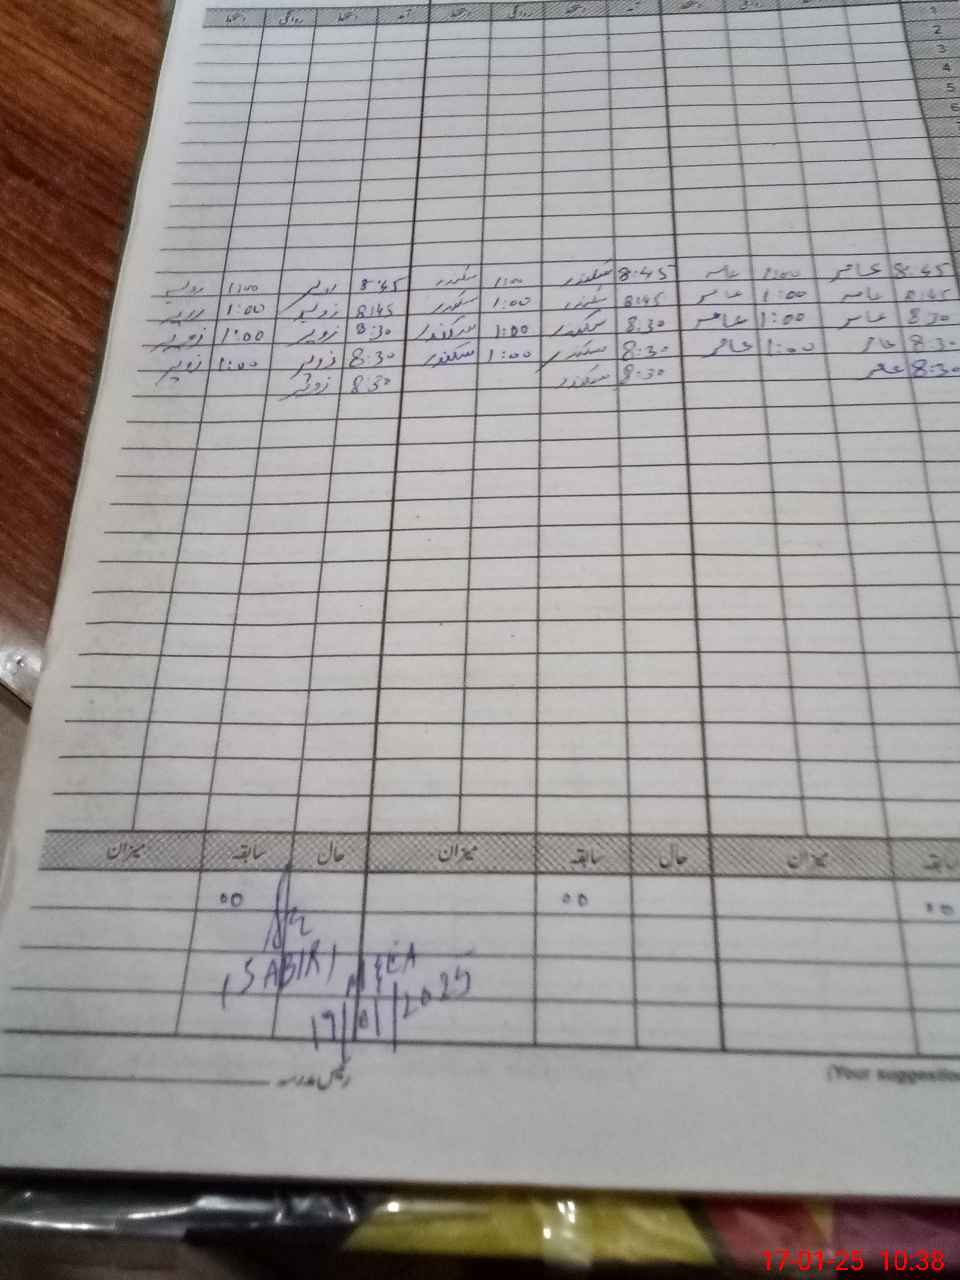 1
2
3
4
5
6
8:45 عامر 1:00 عامر 8:45 سکندر 1:00 سکندر 8:45 زوہیر 1:00 زوہیر
8:45 عامر 1:00 عامر 8:45 سکندر 1:00 سکندر 8:45 زوہیر 1:00 زوہیر
8:30 عامر 1:00 عامر 8:30 سکندر 1:00 سکندر 8:30 زوہیر 1:00 زوہیر
8:30 عامر 1:00 عامر 8:30 سکندر 1:00 سکندر 8:30 زوہیر 1:00 زوہیر
8:30 عامر 8:30 سکندر 8:30 زوہیر
سابقہ میزان حال سابقہ میزان حال سابقہ میزان
00 00 00
(SABIR) M&EA
17/01/2025
رئیس مدرسہ
(Your suggestion
17-01-25 10:38